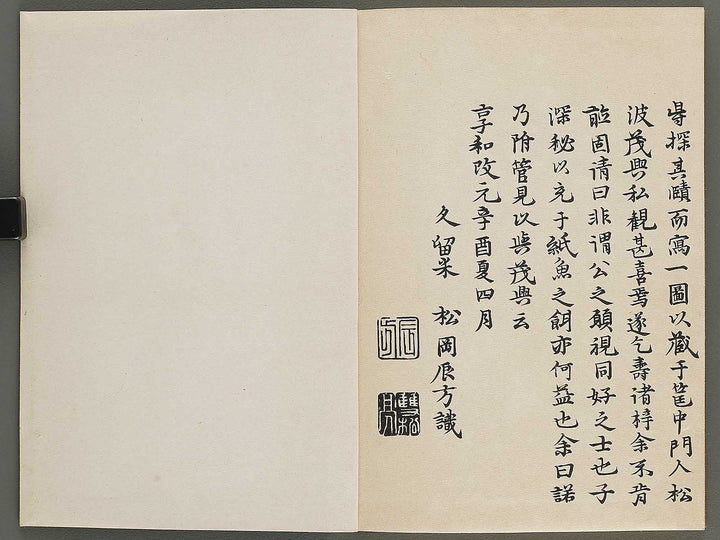 得探其賾而寫一圖以藏于筐中門人松
波茂與私觀甚喜焉遂乞壽諸梓余不肯
茂固請曰非謂公之願視同好之士也子
深秘以充于紙魚之餌亦何益也余曰諾
乃附管見以與茂與云
享和改元辛酉夏四月
久留米 松岡辰方識
辰方
雙松